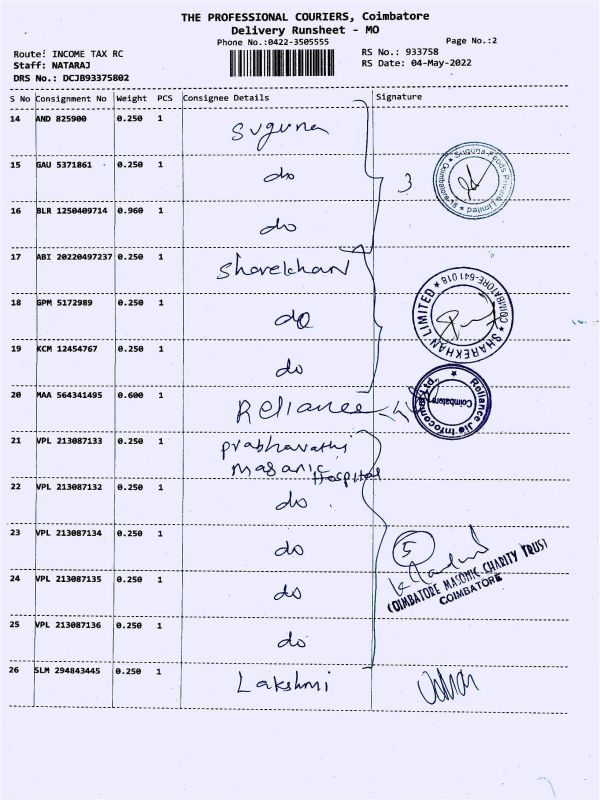 THE PROFESSIONAL COURIERS, Coimbatore
Delivery Runsheet - MO
Phone No.:0422-3505555
Page No.:2
Route: INCOME TAX RC
RS No.: 933758
Staff: NATARAJ
RS Date: 04-May-2022
DRS No.: DCJB93375802
S No Consignment No Weight PCS Consignee Details Signature
14 AND 825900 0.250 1 Suguna
15 GAU 5371861 0.250 1 do 3
Suguna Foods Private Limited * Coimbatore *
16 BLR 1250409714 0.960 1 do
17 ABI 20220497237 0.250 1 Sharekhan
18 GPM 5172989 0.250 1 do
* SHAREKHAN LIMITED * COIMBATORE-641 018
19 KCM 12454767 0.250 1 do
20 MAA 564341495 0.600 1 Reliance
Reliance Jio Infocomm Ltd. * Coimbatore
21 VPL 213087133 0.250 1 prabhavathi
masanic Hospital
22 VPL 213087132 0.250 1 do
23 VPL 213087134 0.250 1 do 5
COIMBATORE MASONIC CHARITY TRUST
COIMBATORE
24 VPL 213087135 0.250 1 do
25 VPL 213087136 0.250 1 do
26 SLM 294843445 0.250 1 Lakshmi